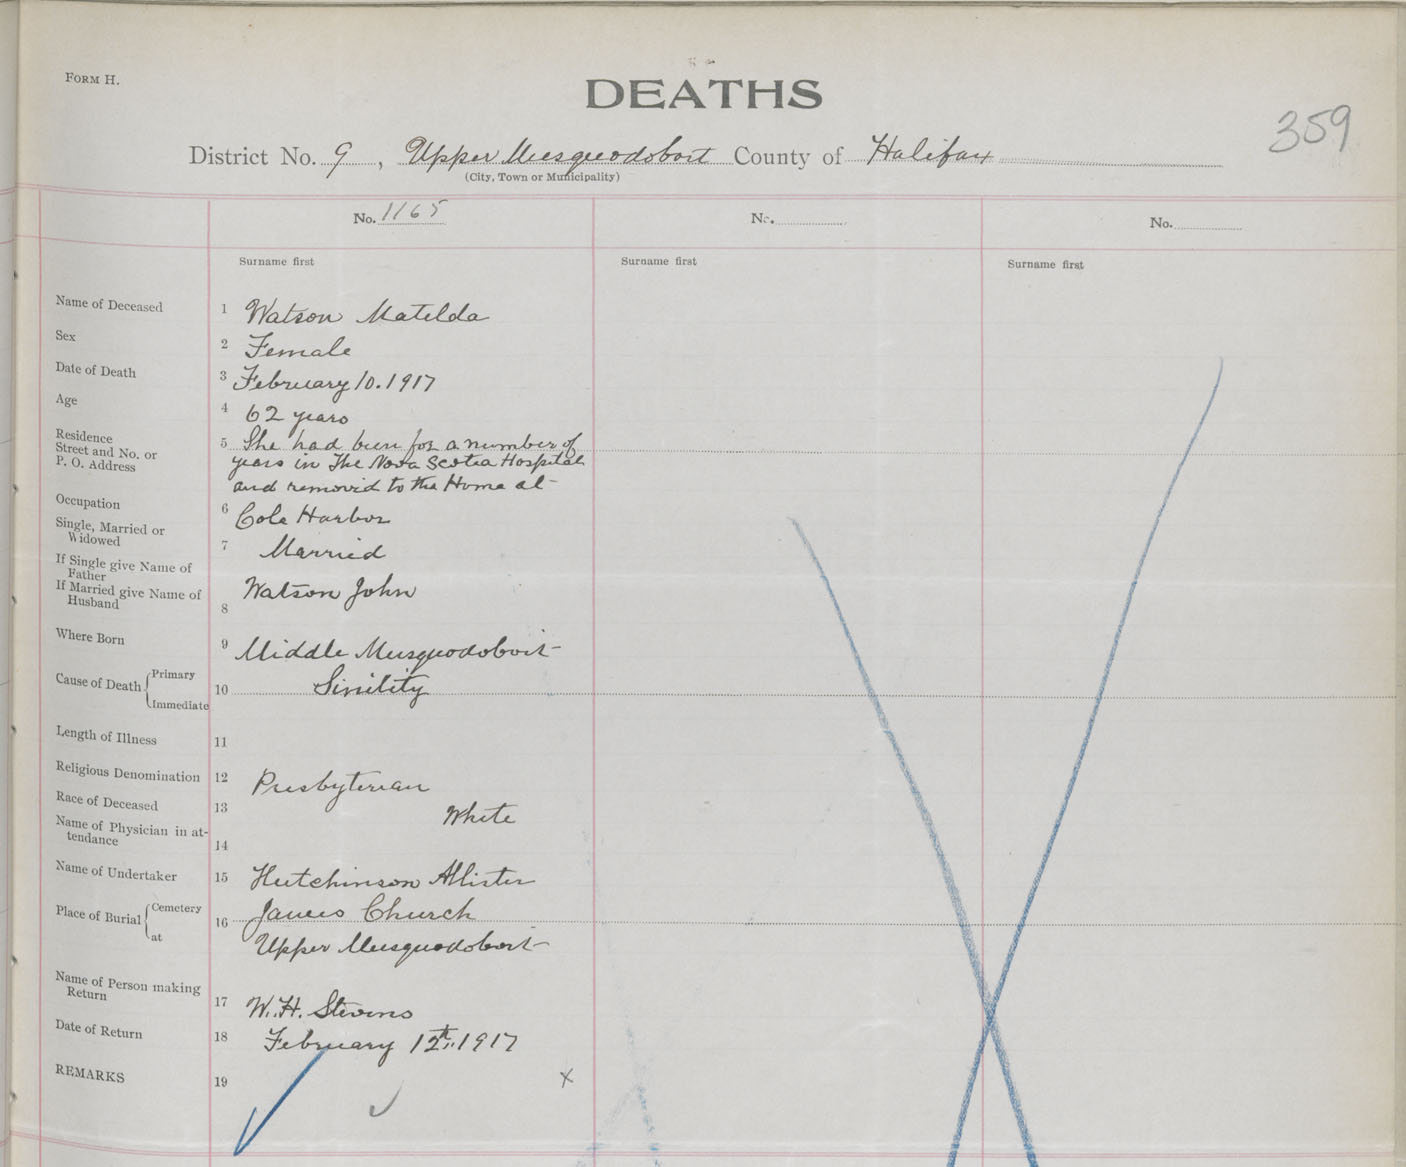 FORM H.
DEATHS
359
District No. 9, Upper Musquodoboit County of Halifax
(City, Town or Municipality)
No. 1165
No.
No.
Surname first
Surname first
Surname first
Name of Deceased 1 Watson Matilda
Sex 2 Female
Date of Death 3 February 10. 1917
Age 4 62 years
Residence
Street and No. or
P. O. Address
5 She had been for a number of
years in The Nova Scotia Hospital
and removed to the Home at
Occupation 6 Cole Harbor
Single, Married or
Widowed
7 Married
If Single give Name of
Father
If Married give Name of
Husband
8 Watson John
Where Born 9 Middle Musquodoboit
Cause of Death { Primary
Immediate
10 Sinility
Length of Illness 11
Religious Denomination 12 Presbyterian
Race of Deceased 13 White
Name of Physician in at-
tendance
14
Name of Undertaker 15 Hutchinson Allister
Place of Burial { Cemetery
at
16 James Church
Upper Musquodoboit
Name of Person making
Return
17 W. H. Stevens
Date of Return 18 February 12th, 1917
REMARKS 19 x